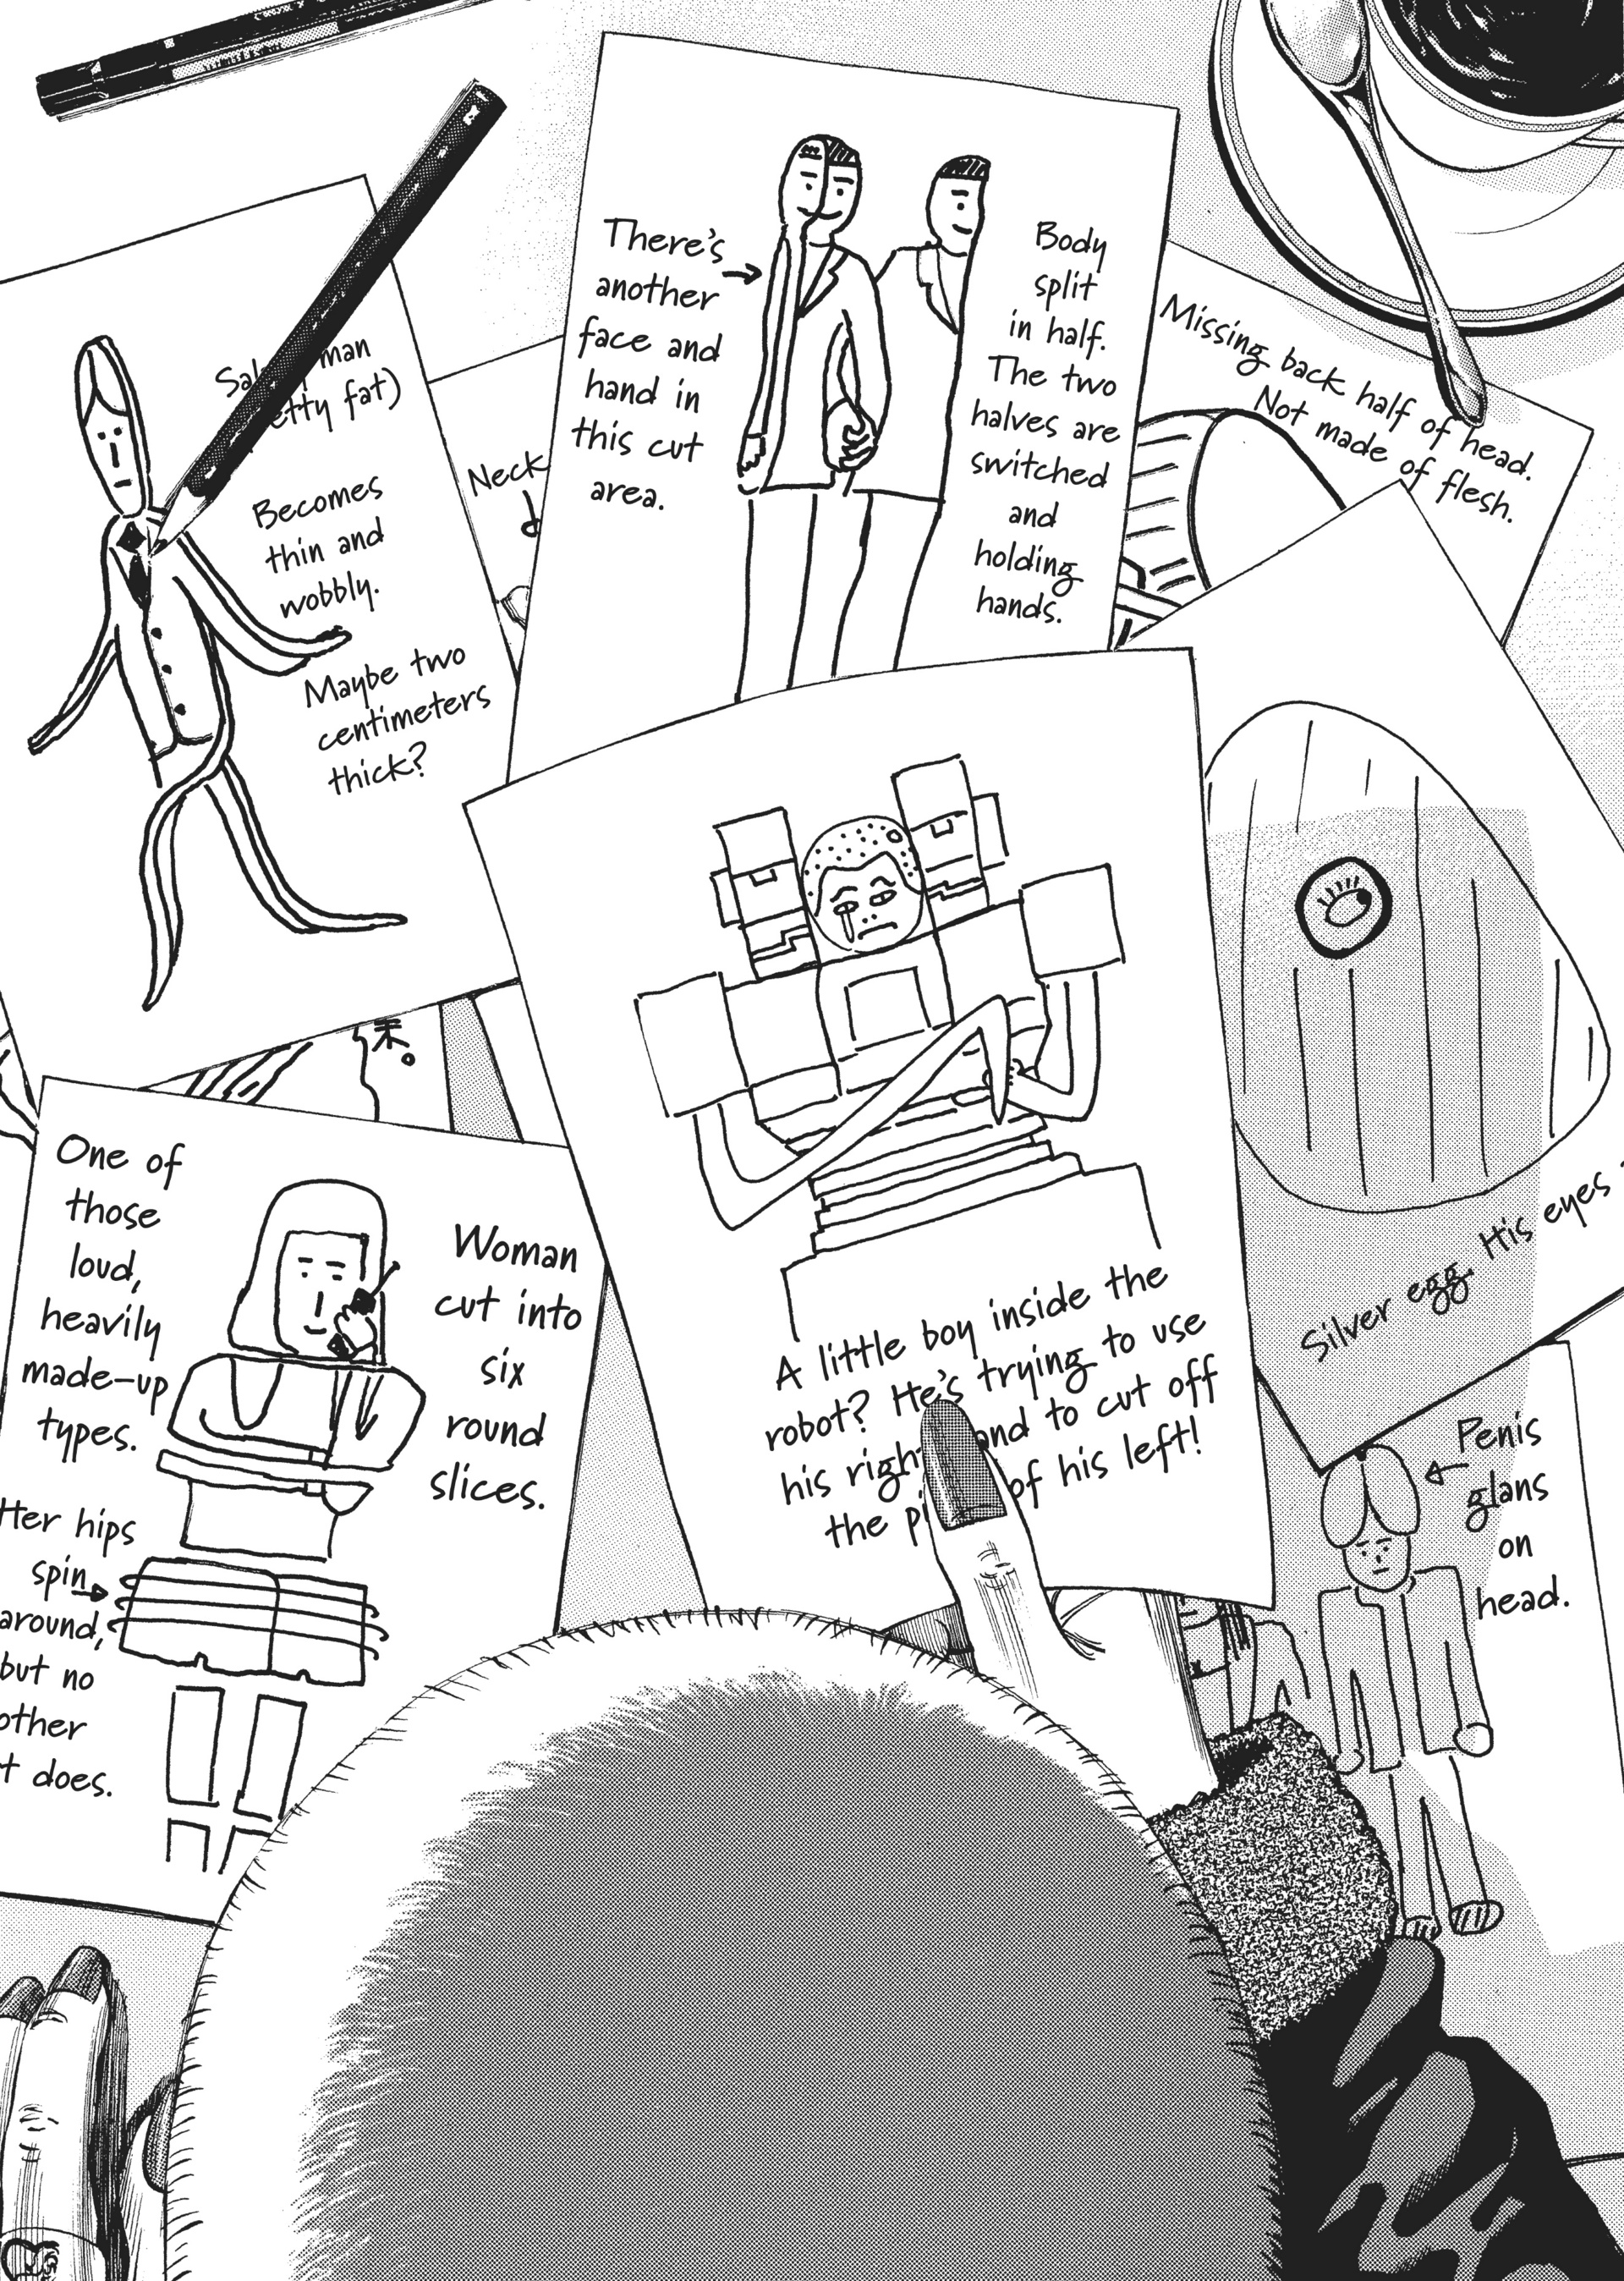 There's
another
face and
hand in
this cut
area.
Body
split
in half.
The two
halves are
switched
and
holding
hands.
Missing back half of head.
Not made of flesh.
fat)
Becomes
thin and
wobbly.
Maybe two
centimeters
thick?
Neck
末。
A little boy inside the
robot? He's trying to use
his to cut off
the of his left!
Silver egg. His eyes
One of
those
loud,
heavily
made-up
types.
Woman
cut into
six
round
slices.
Her hips
spin
around,
but no
other
does.
Penis
glans
on
head.